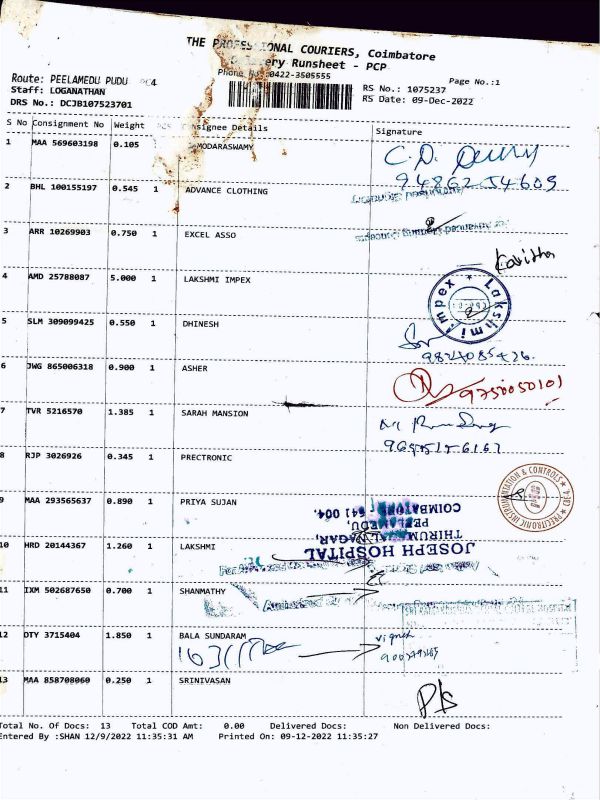 THE PROFESSIONAL COURIERS, Coimbatore
Delivery Runsheet - PCP
Phone No :0422-3505555
Page No.:1
Route: PEELAMEDU PUDU PC4
Staff: LOGANATHAN
DRS No.: DCJB107523701
RS No.: 1075237
RS Date: 09-Dec-2022
S No Consignment No Weight Consignee Details Signature
1 MAA 569603198 0.105 MODARASWAMY
2 BHL 100155197 0.545 1 ADVANCE CLOTHING
3 ARR 10269903 0.750 1 EXCEL ASSO
Kavitha
4 AMD 25788087 5.000 1 LAKSHMI IMPEX
Lakshmi Impex
5 SLM 309099425 0.550 1 DHINESH
6 JWG 865006318 0.900 1 ASHER
9750050101
7 TVR 5216570 1.385 1 SARAH MANSION
8 RJP 3026926 0.345 1 PRECTRONIC
PRECITRONIC INSTRUMENTATION & CONTROLS
9 MAA 293565637 0.890 1 PRIYA SUJAN
JOSEPH HOSPITAL
PEELAMEDU,
COIMBATORE - 641 004.
10 HRD 20144367 1.260 1 LAKSHMI
11 IXM 502687650 0.700 1 SHANMATHY
12 OTY 3715404 1.850 1 BALA SUNDARAM
13 MAA 858708060 0.250 1 SRINIVASAN
P/s
Total No. Of Docs: 13 Total COD Amt: 0.00 Delivered Docs: Non Delivered Docs:
Entered By :SHAN 12/9/2022 11:35:31 AM Printed On: 09-12-2022 11:35:27